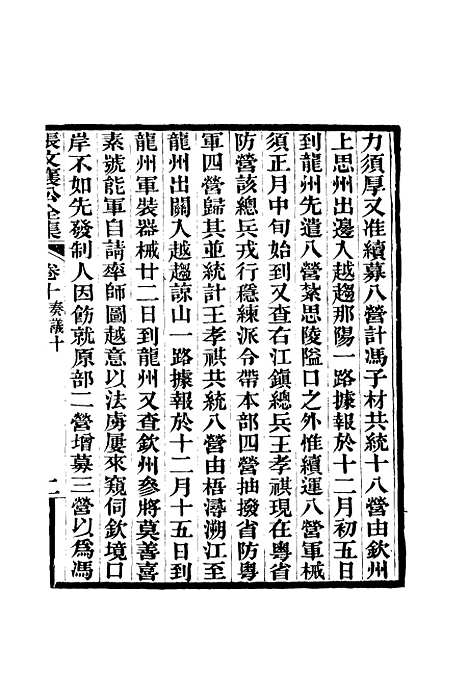 力須厚又准續募八營計馮子材共統十八營由欽州
上思州出邊入越趨那陽一路據報於十二月初五日
到龍州先遣八營紮思陵隘口之外惟續運八營軍械
須正月中旬始到又查右江鎭總兵王孝祺現在粵省
防營該總兵戎行穩練派令帶本部四營抽撥省防粵
軍四營歸其並統計王孝祺共統八營由梧潯溯江至
龍州出關入越趨諒山一路據報於十二月十五日到
龍州軍裝器械廿二日到龍州又查欽州參將莫善喜
素號能軍自請率師圖越意以法虜屢來窺伺欽境口
岸不如先發制人因飭就原部二營增募三營以爲馮
張文襄公全集
卷十 奏議十
二